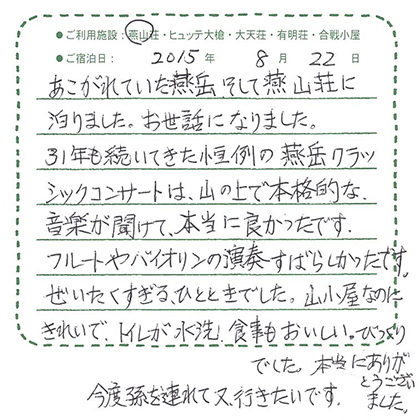 ●ご利用施設：燕山荘・ヒュッテ大槍・大天荘・有明荘・合戦小屋
●ご宿泊日： 2015 年 8 月 22 日
あこがれていた燕岳、そして燕山荘に
泊りました。お世話になりました。
31年も続いてきた恒例の燕岳クラッ
シックコンサートは、山の上で本格的な、
音楽が聞けて、本当に良かったです。
フルートやバイオリンの演奏すばらしかったです。
ぜいたくすぎる、ひとときでした。山小屋なのに
きれいで、トイレが水洗！食事もおいしい。びっくり
でした。本当にありが
とうござい
ました。
今度孫を連れて又行きたいです。